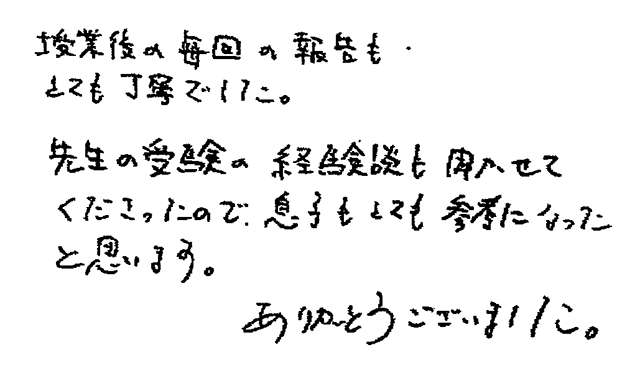 授業後の毎回の報告も
とても丁寧でした。
先生の受験の経験談も聞かせて
くださったので、息子もとても参考になった
と思います。
ありがとうございました。